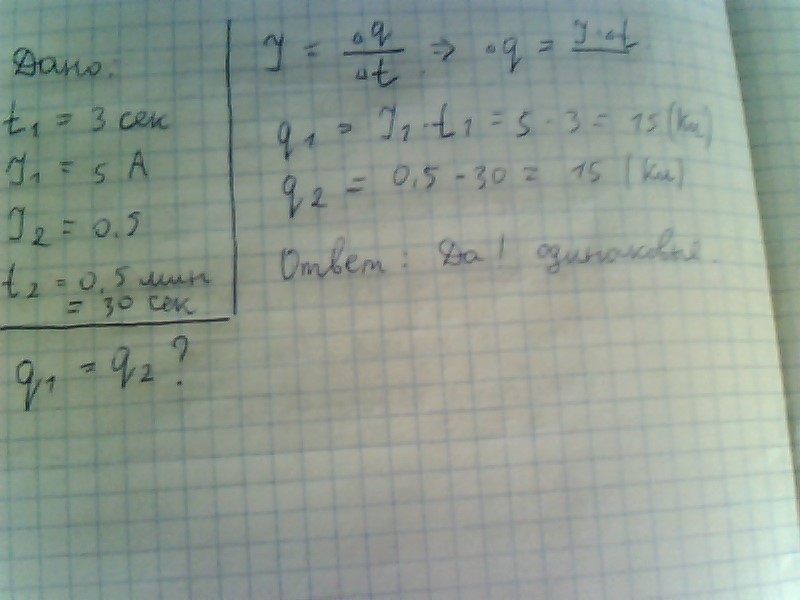 Дано:
t₁ = 3 сек
I₁ = 5 А
I₂ = 0.5
t₂ = 0,5 мин
= 30 сек
q₁ = q₂ ?
I = Δq / Δt ⇒ Δq = I·Δt
q₁ = I₁·t₁ = 5 · 3 = 15 (Кл)
q₂ = 0,5 · 30 = 15 (Кл)
Ответ: Да! одинаковые.